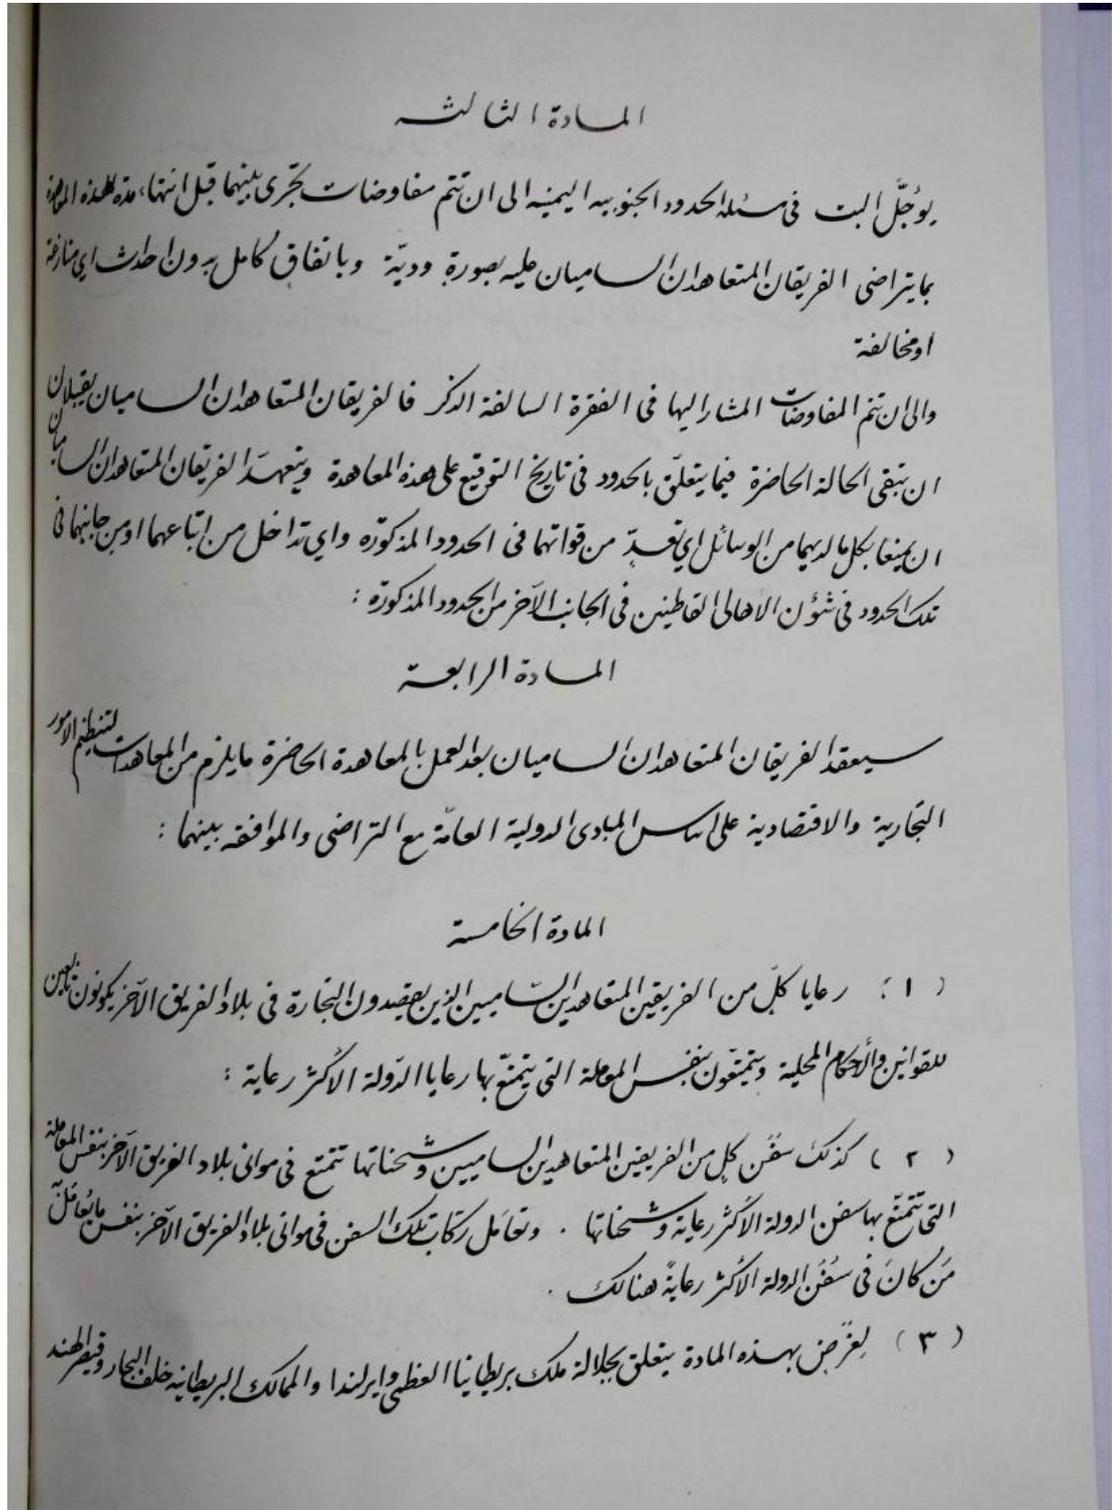 المادة الثالثه
يوُجَّل البت في مسئله الحدود الجنوبيه اليمنيه الى ان تتم مفاوضات تجرى بينهما قبل انتهاء مدة هذه المعاهدة
بما يتراضى الفريقان المتعاهدان الساميان عليه بصورة وديّة وباتفاق كامل بدون احداث اي منازعة
او مخالفة
والى ان تتم المفاوضات المشار اليها في الفقرة السالفة الذكر فالفريقان المتعاهدان الساميان يقبلان
ان تبقى الحالة الحاضرة فيما يتعلّق بالحدود في تاريخ التوقيع على هذه المعاهدة ويتعهدّ الفريقان المتعاهدان الساميان
ان يمنعا بكل ما لديهما من الوسائل اي تعدٍّ من قواتهما في الحدود المذكورة واي تداخل من اتباعهما او من جانبهما في
تلك الحدود في شؤن الأهالي القاطنين في الجانب الآخر من الحدود المذكورة :
المادة الرابعة
سيعقد الفريقان المتعاهدان الساميان بعد العمل بالمعاهدة الحاضرة ما يلزم من المعاهدات لتنظيم الامور
التجارية والاقتصادية على اساس المبادى الدولية العامّة مع التراضى والموافقه بينهما :
المادة الخامسة
( ١ ) رعايا كلّ من الفريقين المتعاهدين السّاميين الذين يقصدون التجارة في بلاد الفريق الآخر يكونون تابعين
للقوانين والأحكام المحلية ويتمتّعون بنفس المعاملة التي يتمتّع بها رعايا الدّولة الأكثر رعاية :
( ٢ ) كذلك سفُن كلٍ من الفريقين المتعاهدين الساميين وشُحناتها تتمتع في موانى بلاد الفريق الآخر بنفس المعاملة
التي تَتَمتّع بها سفن الدولة الأكثر رعاية وشحناتها . وتعاَمل ركاب تلك السفن في موانى بلاد الفريق الآخر بنفس ما يُعامَل به
مَن كانَ في سُفُن الدولة الأكثر رعايةً هنالك .
( ٣ ) لِغَرَض بهذه المادة يتعلق بجلالة ملك بريطانيا العظمى وايرلندا والممالك البريطانية خلف البحار وقيصر الهند